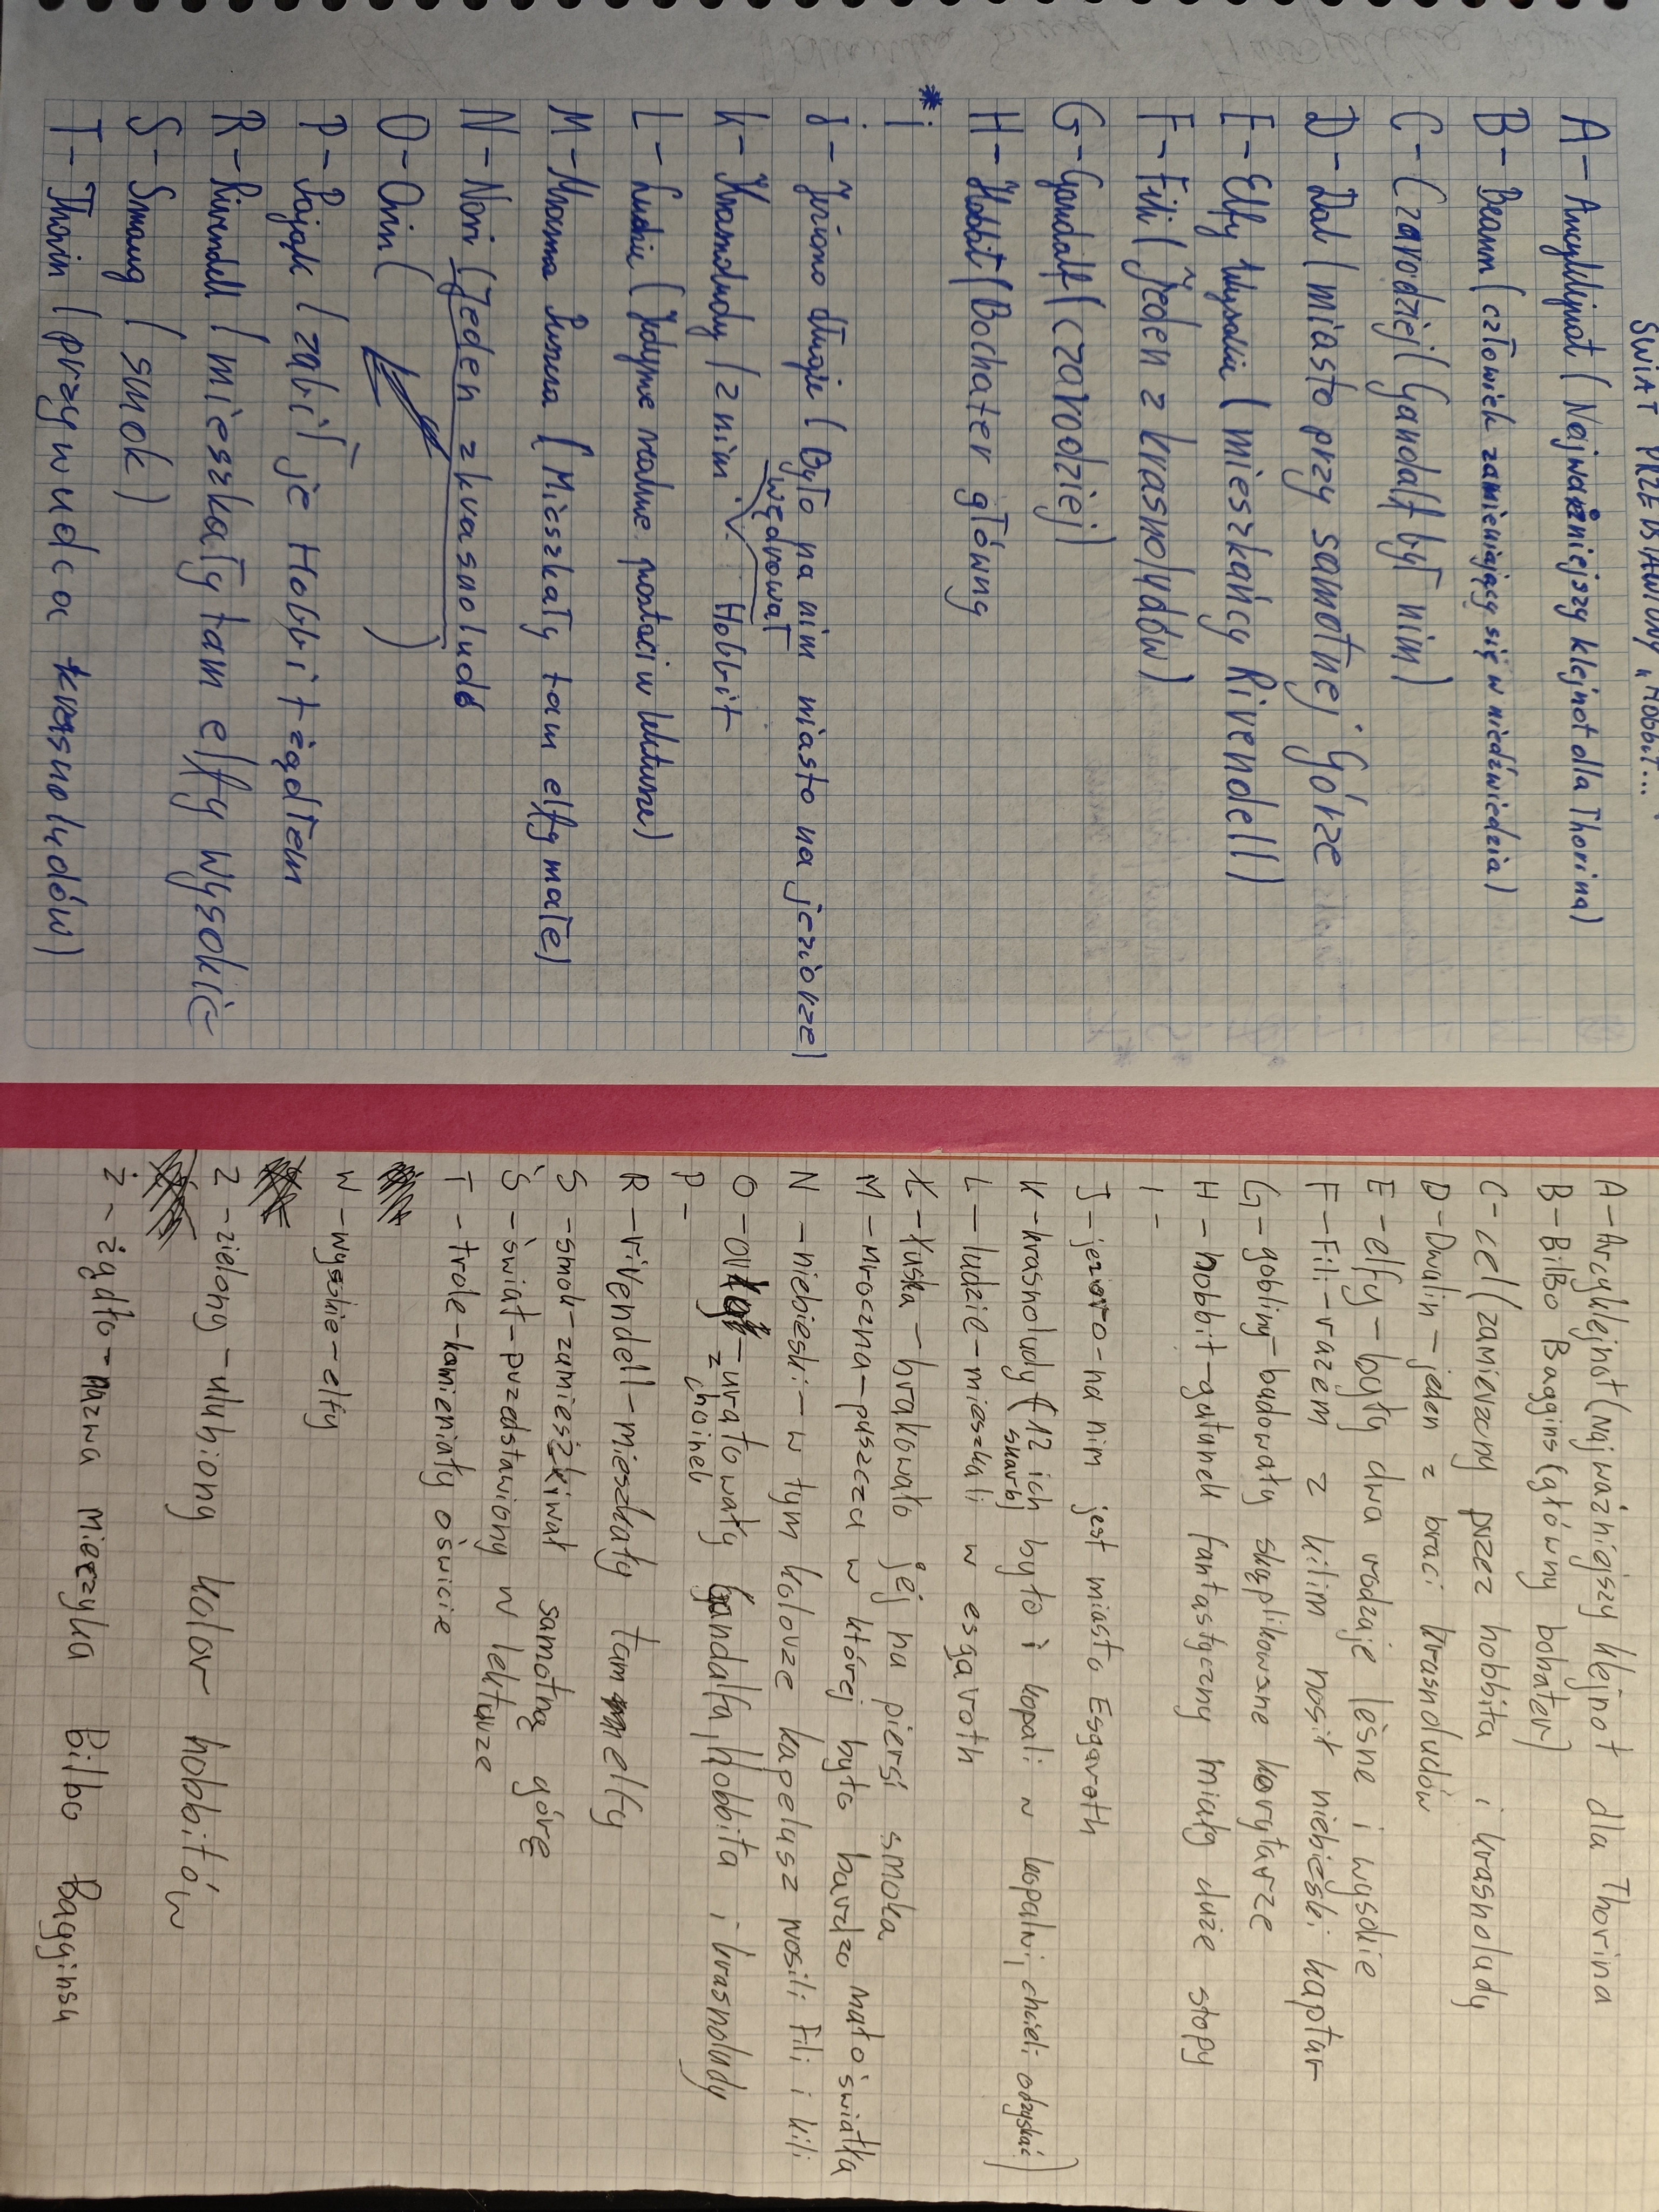 ŚWIAT PRZEDSTAWIONY „HOBBIT...
A - Arcyklejnot (Najważniejszy klejnot dla Thorina)
B - Beorn (człowiek zamieniający się w niedźwiedzia)
C - Czarodziej (Gandalf był nim)
D - Dal (miasto przy samotnej Górze
E - Elfy wysokie (mieszkańcy Rivendell)
F - Fili (jeden z krasnoludów)
G - Gandalf (czarodziej)
H - Hobbit (Bochater główny
* i
J - Jezioro długie (Było na nim miasto na jeziorze)
wędrował
K - Krasnoludy (z nim Hobbit
L - Ludzie (Jedyne realne postaci w lekturze)
M - Mroczna Puszcza (Mieszkały tam elfy małe)
N - Nori (Jeden z krasnoludó
O - Oin ( )
P - Pająk (zabił je Hobbit żądłem
R - Rivendell (mieszkały tam elfy wysokie
S - Smaug (smok)
T - Thorin (przywudca krasnoludów)
A - Arcyklejnot (najważniejszy klejnot dla Thorina
B - BilBo Baggins (główny bohater)
C - cel (zamierzony przez hobbita i krasnoludy
D - Dwalin - jeden z braci krasnoludów
E - elfy - były dwa rodzaje leśne i wysokie
F - Fili - razem z kilim nosił niebieski kaptur
G - gobliny - budowały skąplikowane korytarze
H - hobbit - gatunek fantastyczny miały duże stopy
I -
J - jezioro - na nim jest miasto Esgaroth
K - krasnoludy (12 ich było i kopali w kopalni, chieli odzyskać
skarb)
L - ludzie - mieszkali w esgaroth
Ł - łuska - brakowało jej na piersi smoka
M - mroczna - puszcza w której było bardzo mało światła
N - niebieski - w tym kolorze kapelusz nosili Fili i kili
O - - uratowały Gandalfa, Hobbita i krasnoludy
z choinek
P -
R - rivendell - mieszkały tam elfy
S - smok - zamieszkiwał samotną górę
Ś - świat - przedstawiony w lekturze
T - trole - kamieniały o świcie
W - wysokie - elfy
Z - zielony - ulubiony kolor hobbitów
Ż - żądło - nazwa mieczyka Bilbo Bagginsa